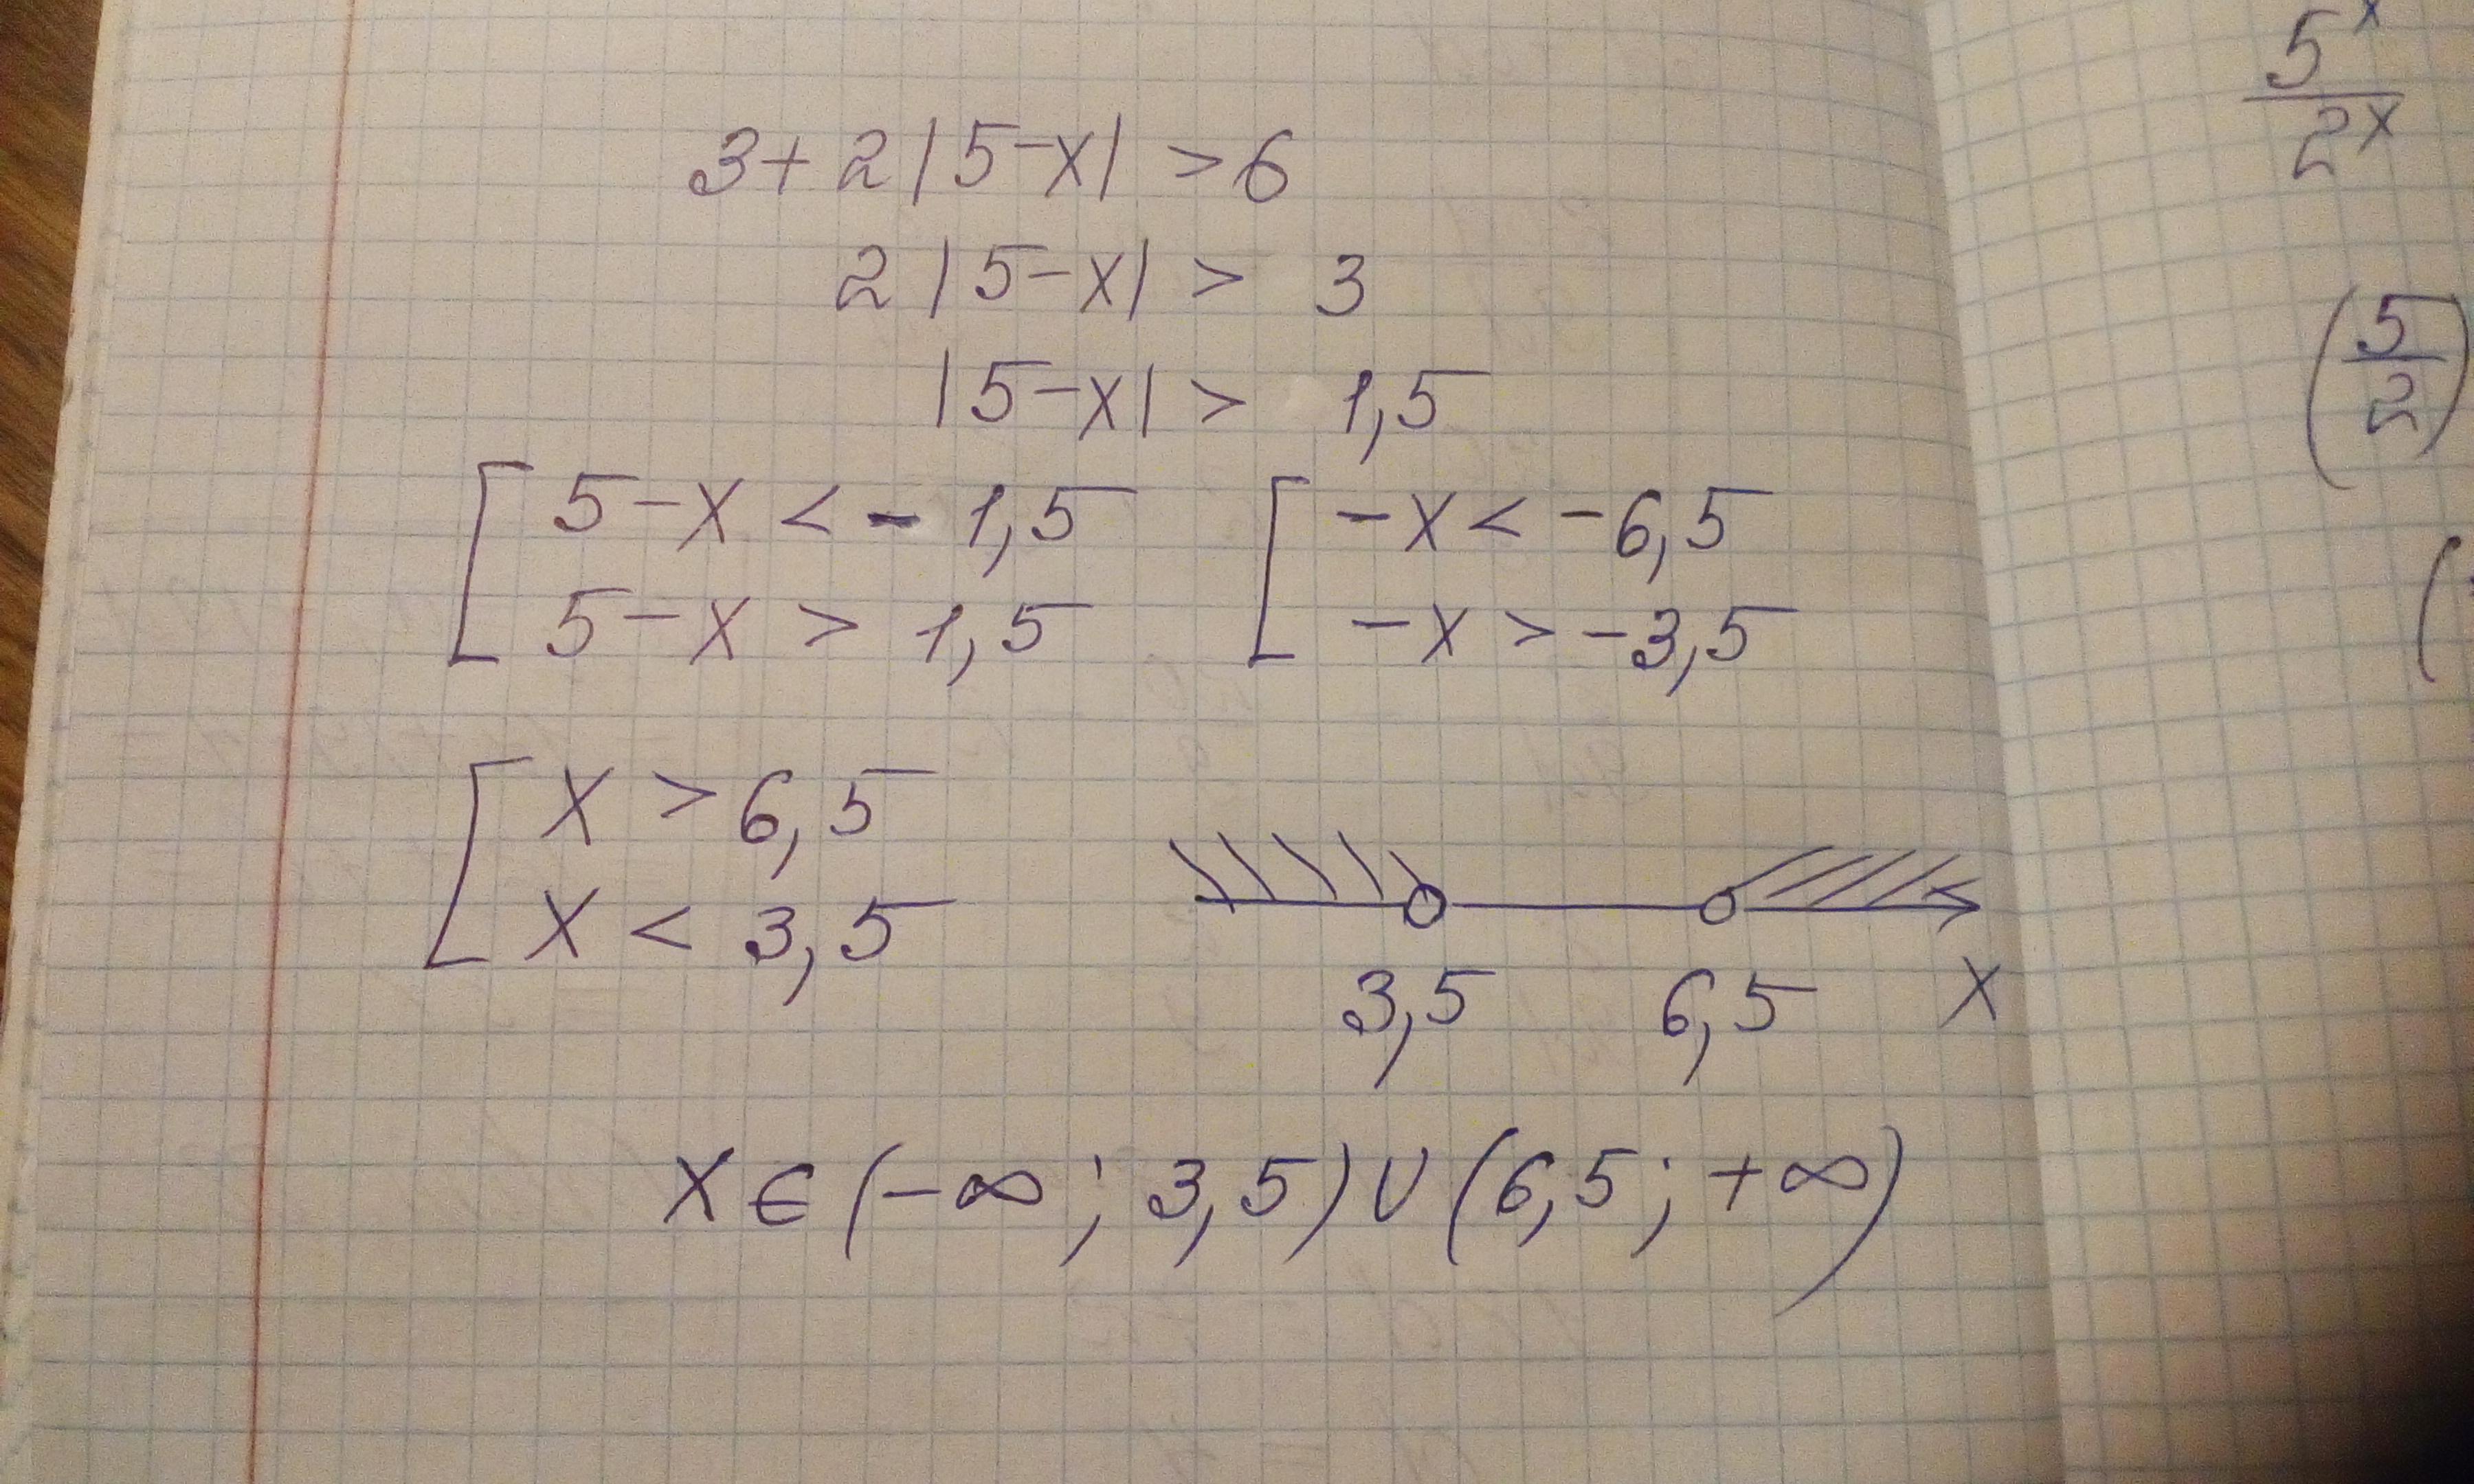 3+2|5-x|>6
2|5-x|>3
|5-x|>1,5
[5-x<-1,5 [-x<-6,5
5-x>1,5 -x>-3,5
[x>6,5
x<3,5
3,5 6,5 x
x∈(-∞;3,5)∪(6,5;+∞)
5^x
2^x
(5/2)
(